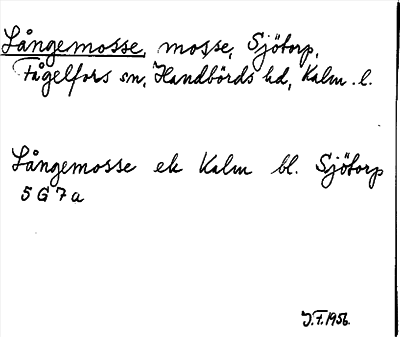 Långemosse, mosse, Sjötorp,
Fågelfors sn, Handbörds hd, Kalm. l.
Långemosse ek Kalm bl. Sjötorp
5 G 7 a
J.F. 1956.